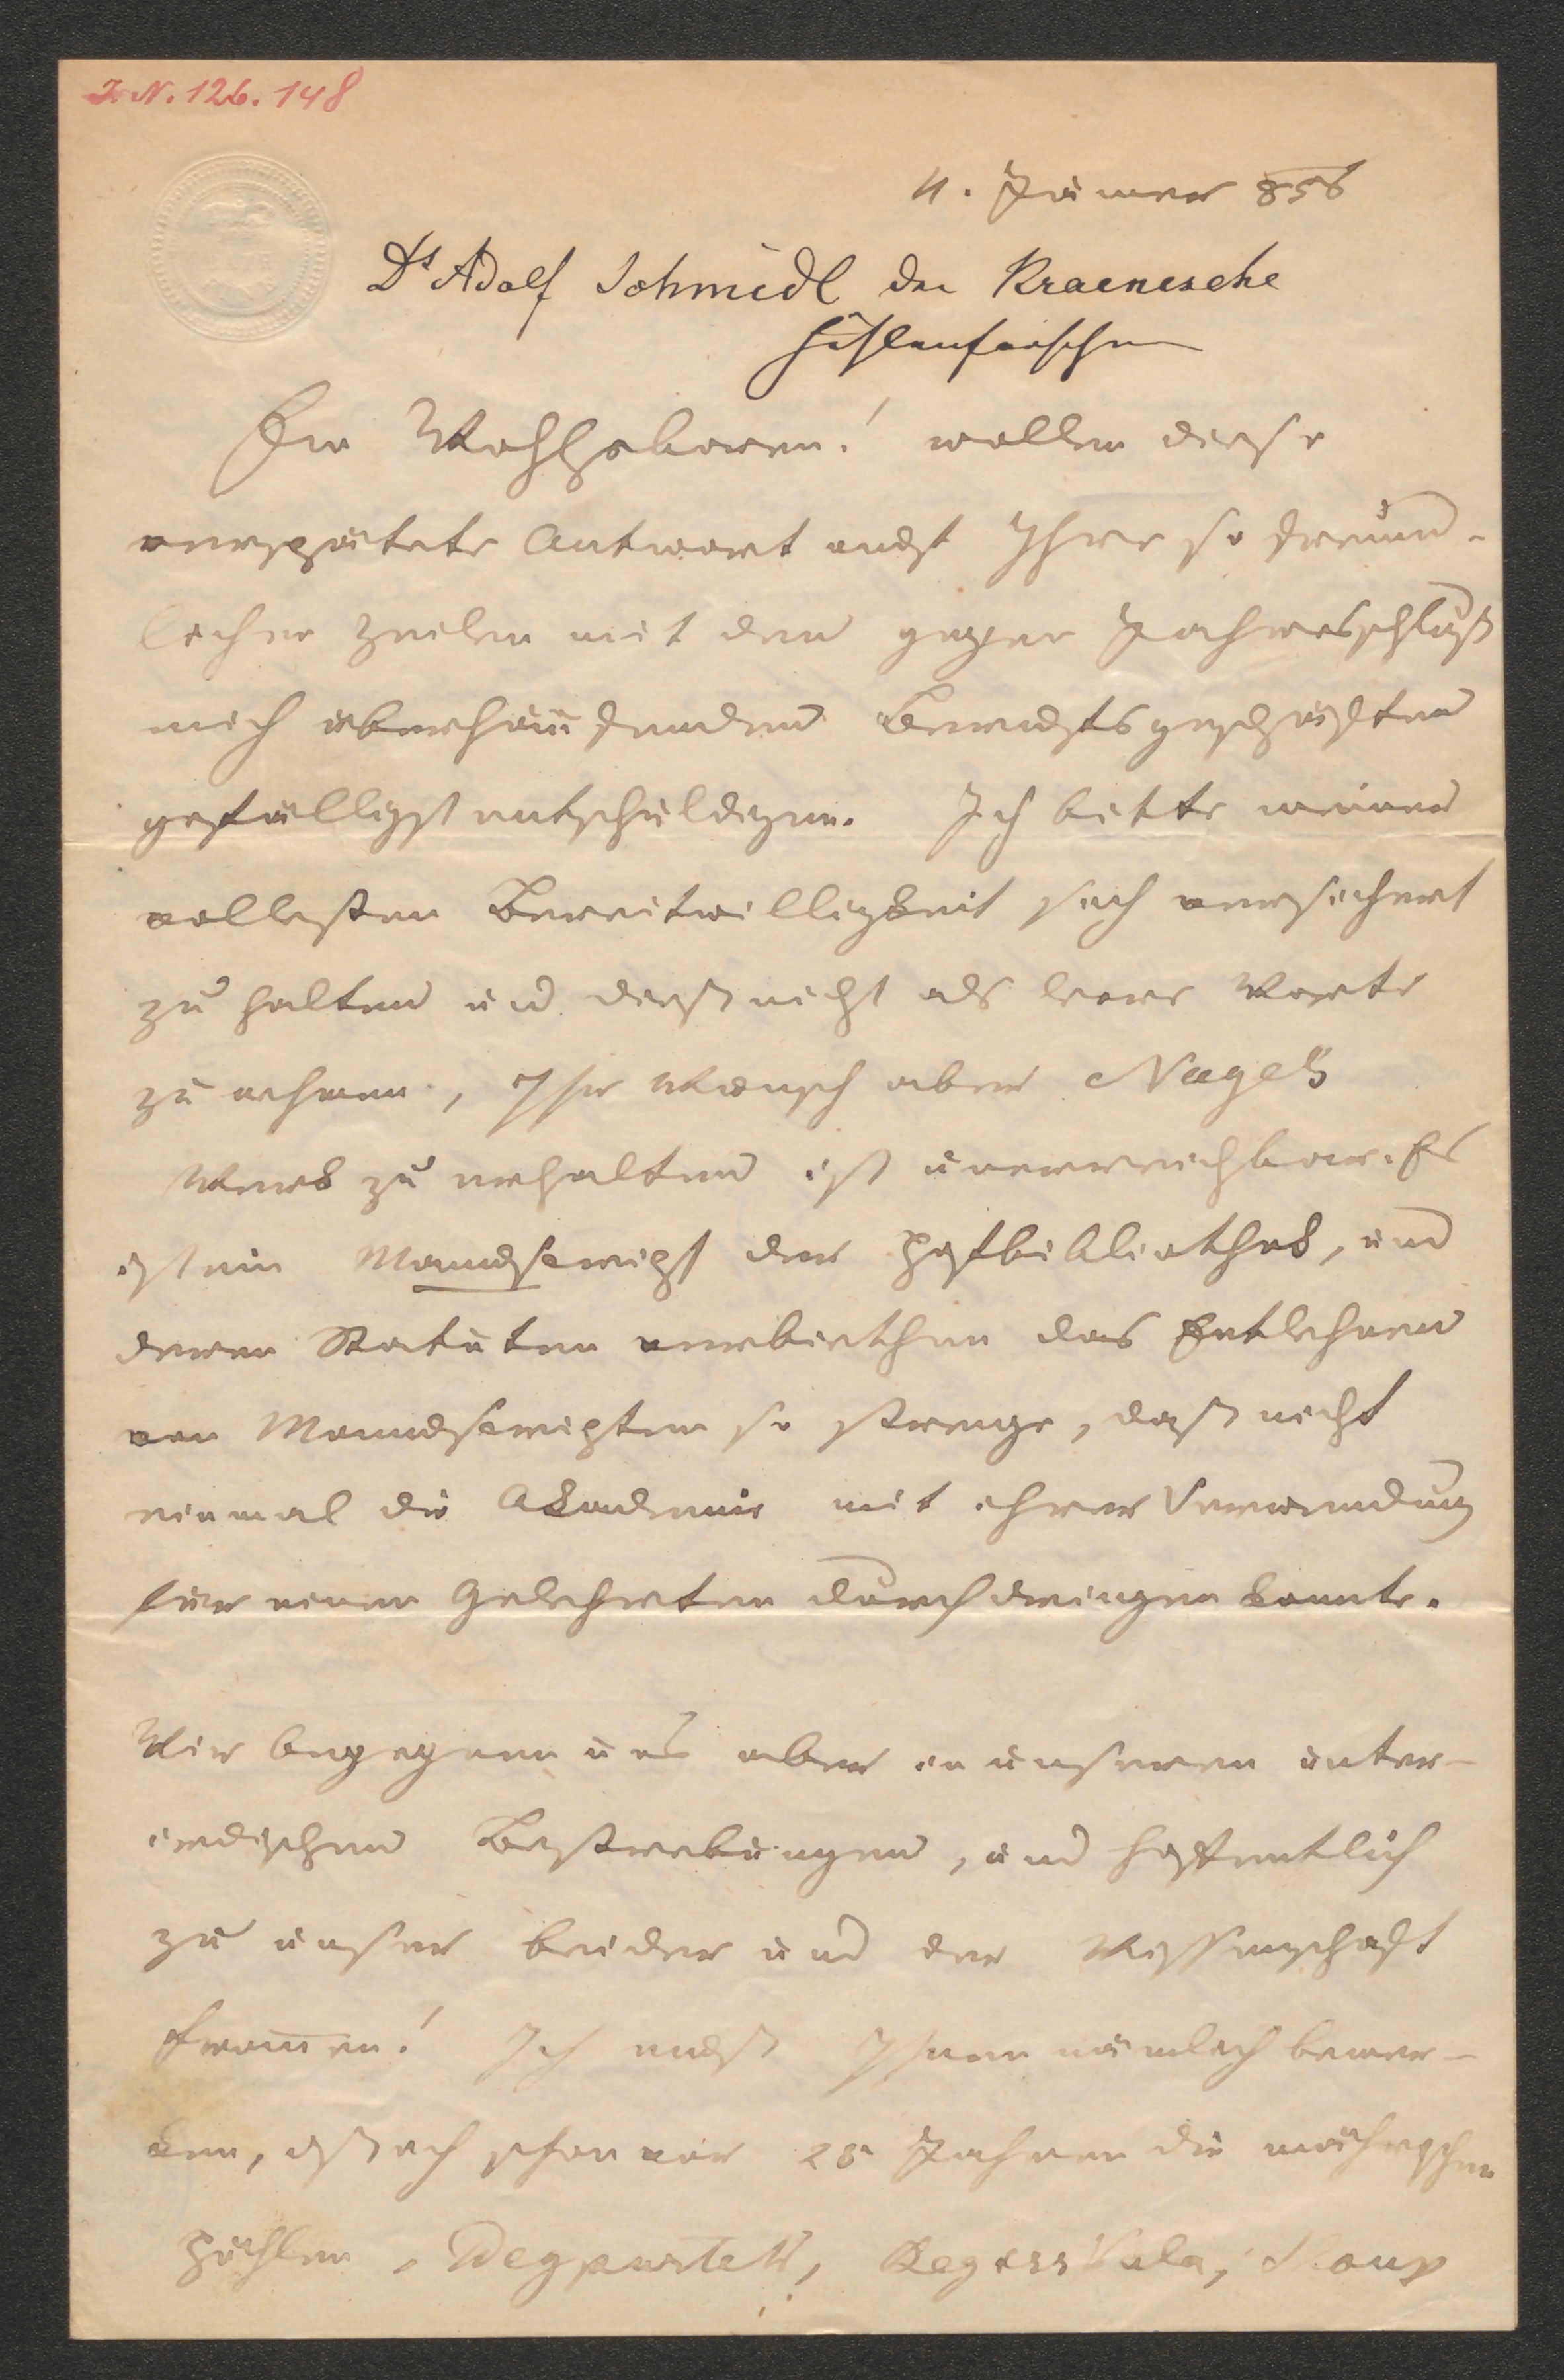 I. N. 126.148
4. Jänner 856
Dr Adolf Schmidl der Krainische
Höhlenforscher
Euer Wohlgeboren! wollen diese
verspätete Antwort auf Ihre so freund-
lichen Zeilen mit den gegen Jahresschluß
mich überhäufenden Berufsgeschäften
gefälligst entschuldigen. Ich bitte meiner
vollesten Bereitwilligkeit sich versichert
zu halten und dieß nicht als leere Worte
zu nehmen, Ihr Wunsch aber Nagels
Werk zu erhalten ist unerreichbar. Es
ist ein Manuscript der Hofbibliothek, und
deren Statuten verbiethen das Entlehnen
von Manuscripten so strenge, daß nicht
einmal die Akademie mit ihrer Verwendung
für einen Gelehrten durchdringen konnte.
Wir begegnen uns aber in unseren unter-
irdischen Bestrebungen, und hoffentlich
zu unser beider und der Wissenschaft
Frommen! Ich muß Ihnen nämlich bemer-
ken, daß ich schon vor 25 Jahren die mährischen
Höhlen, Sloup